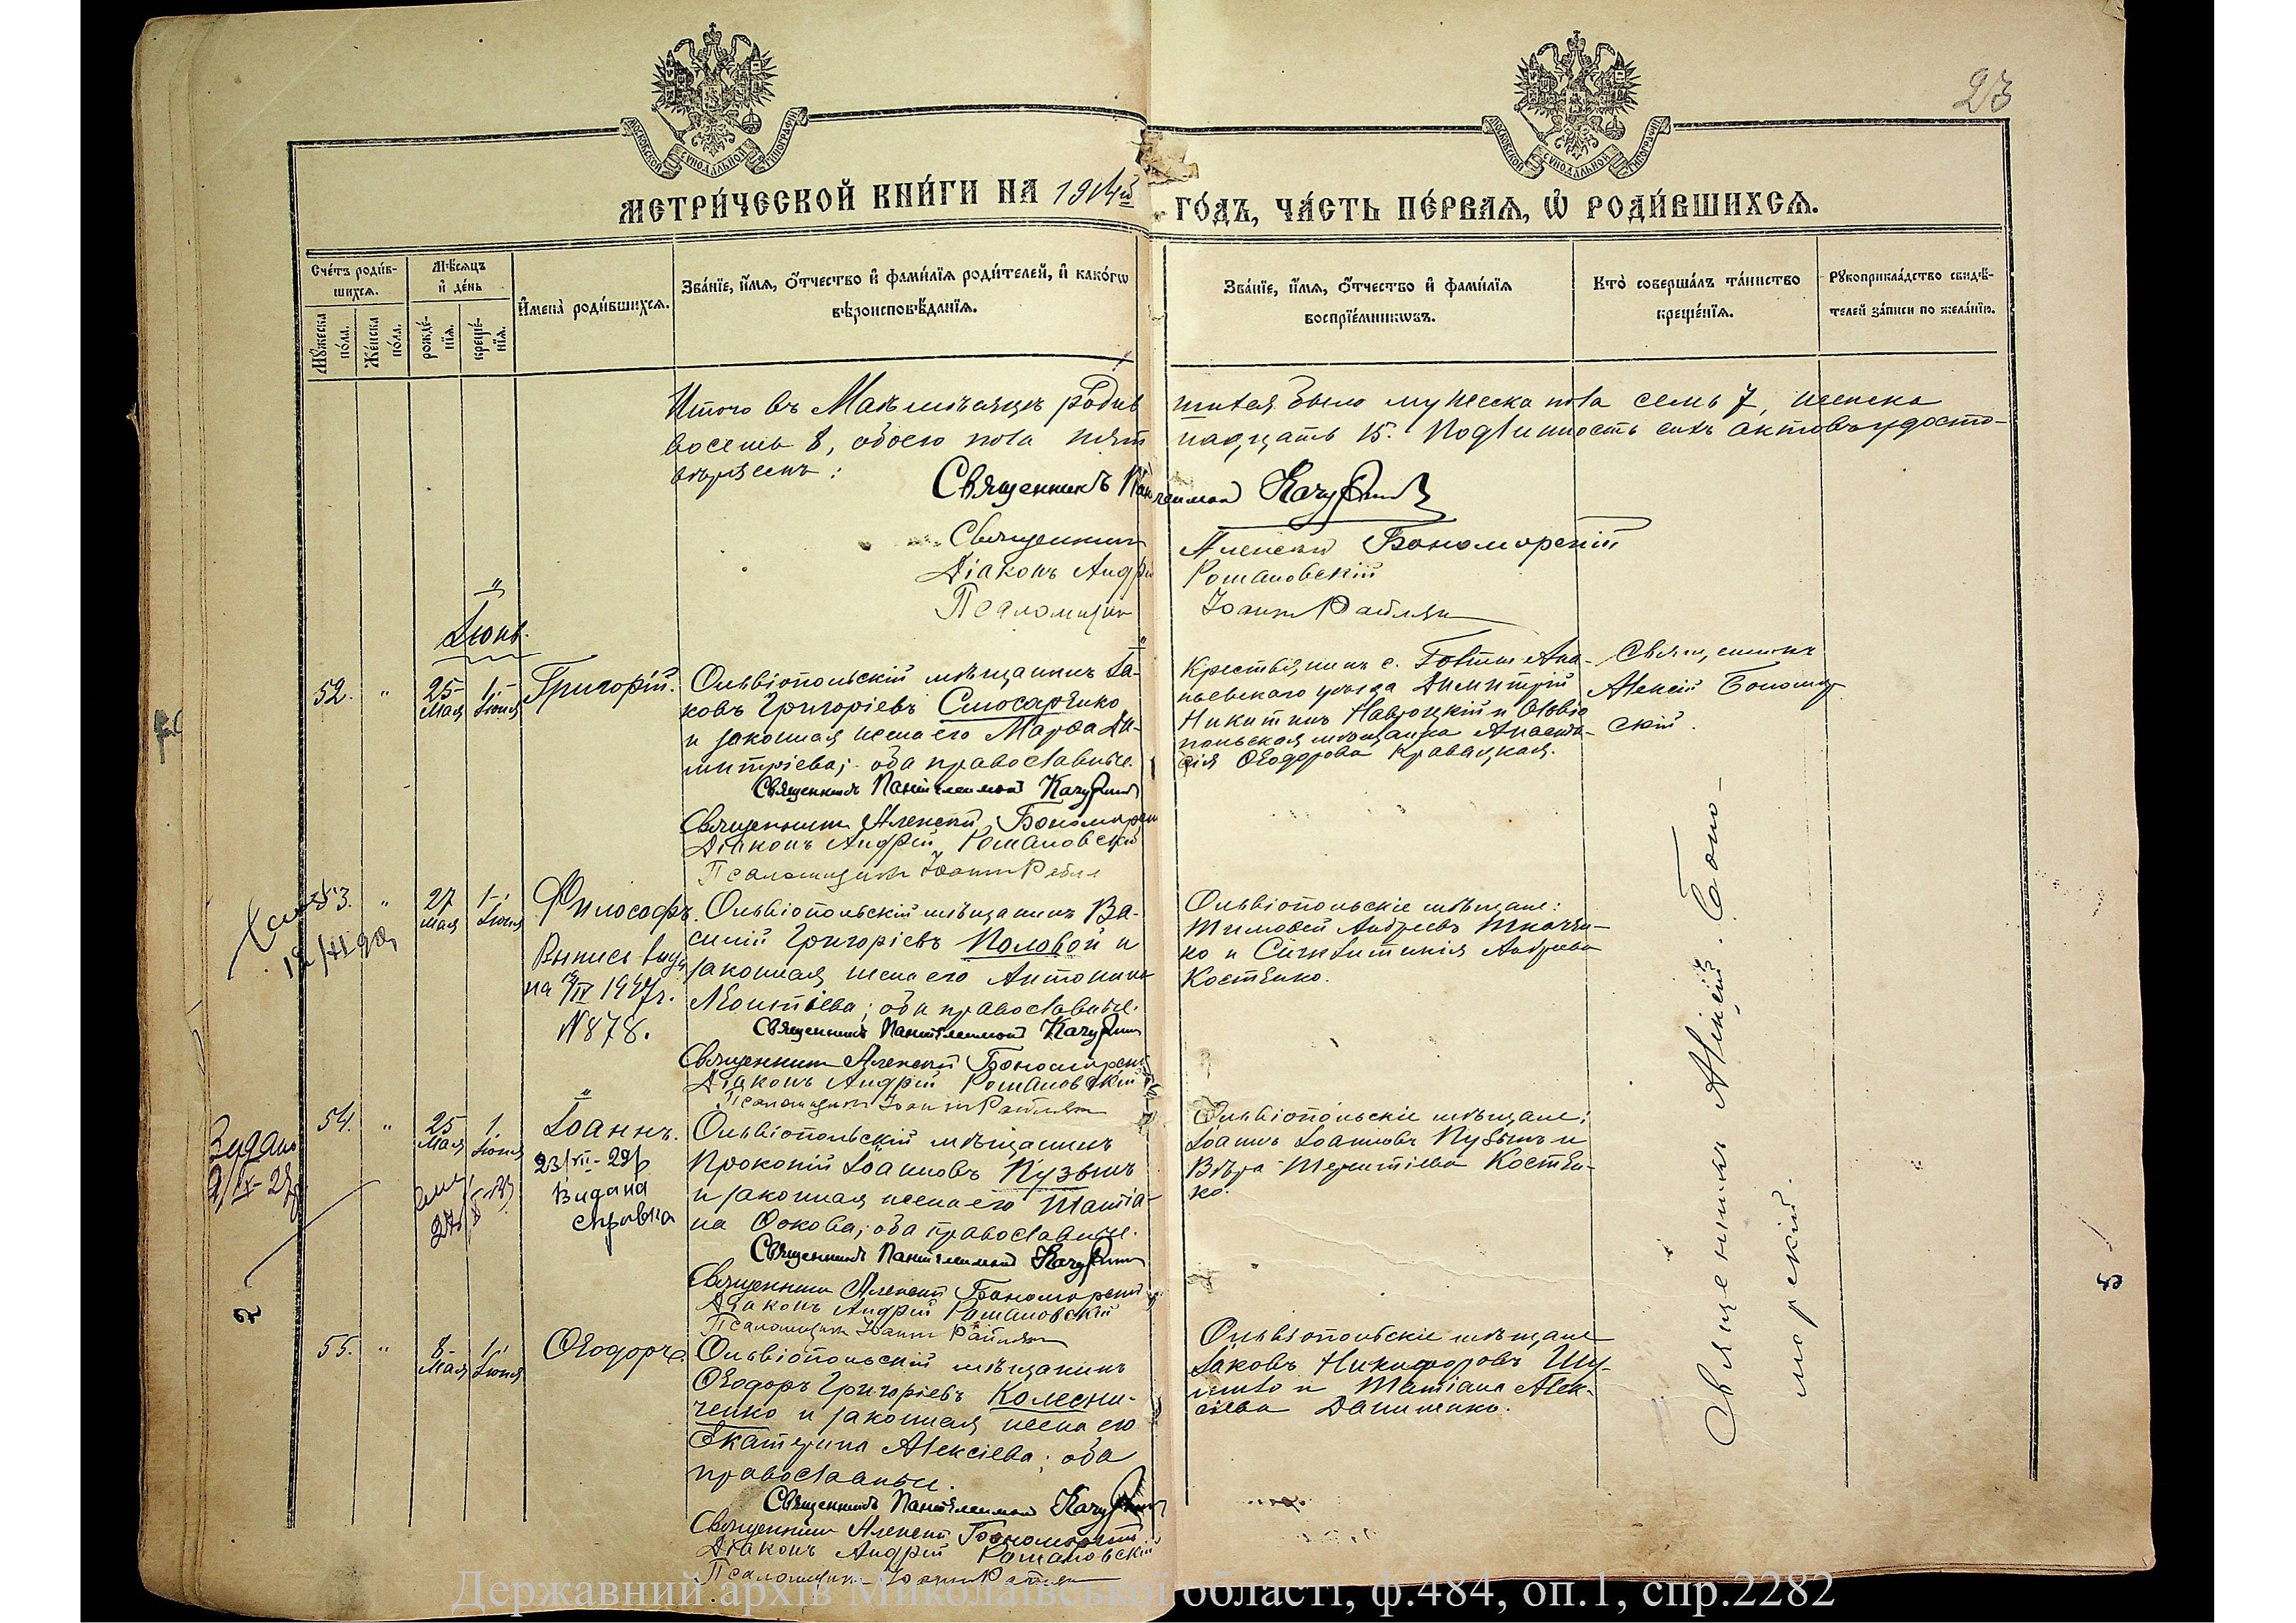 23
МОСКОВСКОЙ СУНОДАЛЬНОЙ ТИПОГРАФИИ
МОСКОВСКОЙ СУНОДАЛЬНОЙ ТИПОГРАФИИ
МЕТРИ́ЧЕСКОЙ КНИ́ГИ НА 1914й ГО́ДЪ, ЧА́СТЬ ПЕ́РВАЯ, Ѡ РОДИ́ВШИХСЯ.
Сче́тъ роди́вшихся.
Мꙋ́жеска по́ла.
Же́нска по́ла.
Мѣ́сяцъ и де́нь
рожде́нїя.
креще́нїя.
Имена̀ роди́вшихся.
Зва́нїе, и́мя, о́тчество и фами́лїя роди́телей, и како́гѡ
вѣроисповѣ́данїя.
Зва́нїе, и́мя, о́тчество и фами́лїя
воспрїе́мникѡвъ.
Кто̀ соверша́лъ та́инство
креще́нїя.
Рꙋкоприкла́дство свидѣ́-
телей за́писи по жела́нїю.
Итого въ Маѣ мѣсяцѣ родив шихся было мужеска пола семь 7, женска
восемь 8, обоего пола пят надцать 15. Подлинность сихъ актовъ удосто-
вѣряемъ:
Священникъ Пантелеимон
Священникъ Алексей Бономорскій
Діаконъ Андрій Романовскій
Псаломщик Іоанн
Іюнь.
52. " 25 Мая 1 Іюня Григорій.
Ольвіопольскій мѣщанинъ Іа-
ковъ Григоріевъ Слюсаренко
и законная жена его Марѳа Ди-
митріева; оба православные.
Священникъ Пантелеимон
Священник Алексей
Діаконъ Андрій Романовскій
Псаломщик Іоанн
Крестьянинъ с. Ана-
ньевскаго уѣзда Димитрій
Никитинъ Навроцкій и Ольвіо
польская мѣщанка Анаста-
сія Ѳеодорова Кравацкая.
Священникъ
Алексій Бономор
скій.
53. " 27 Мая 1 Іюня Философъ.
Выпись выда
на 1947г.
N878.
Ольвіопольскій мѣщанинъ Ва-
силій Григоріевъ Половой и
законная жена его Антонина
Леонтіева; оба православные.
Священникъ Пантелеимон
Священник Алексей
Діаконъ Андрій Романовскій
Псаломщик Іоанн
Ольвіопольскіе мѣщане:
Тимоѳей Андреевъ Ткачен-
ко и Сѵнклитикія Андреева
Костенко.
Видано
9/IX-29р
54. " 25 Мая 1 Іюня Іоаннъ.
23/VII-29р
Видана
справка
Ольвіопольскій мѣщанинъ
Прокопій Іоанновъ Пузынъ
и законная жена его Татіа-
на Фокова; оба православные.
Священникъ Пантелеимон
Священник Алексей Бономорскій
Діаконъ Андрій Романовскій
Псаломщик Іоанн
Ольвіопольскіе мѣщане:
Іоаннъ Іоанновъ Пузынъ и
Вѣра Терентіева Костен-
ко.
55. " 8 Мая 1 Іюня Ѳеодоръ.
Ольвіопольскій мѣщанинъ
Ѳеодоръ Григоріевъ Колесни-
ченко и законная жена его
Екатерина Алексіева; оба
православные.
Священникъ Пантелеимон
Священник Алексей Бономорскій
Діаконъ Андрій Романовскій
Псаломщик Іоанн
Ольвіопольскіе мѣщане
Іаковъ Никифоровъ
и Татіана Алек-
сіева Даниленко.
Священникъ Алексій Боно-
морскій.
Державний архів Миколаївської області, ф.484, оп.1, спр.2282